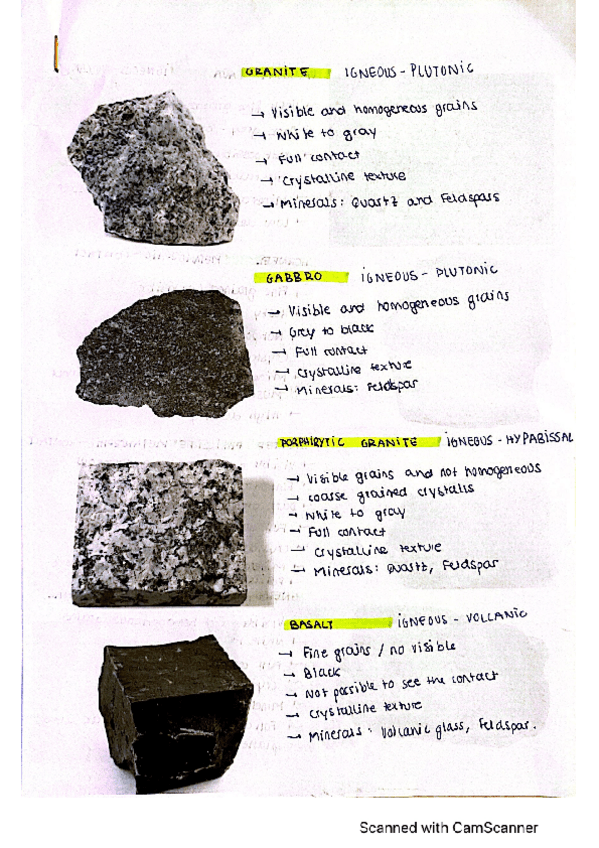 GRANITE IGNEOUS - PLUTONIC
→ Visible and homogeneous grains
→ White to gray
→ Full contact
→ Crystalline texture
→ Minerals: Quartz and Feldspars
GABBRO IGNEOUS - PLUTONIC
→ Visible and homogeneous grains
→ Grey to black
→ Full contact
→ Crystalline texture
→ Minerals: Feldspar
PORPHIRYTIC GRANITE IGNEOUS - HYPABISSAL
→ Visible grains and not homogeneous
→ coarse grained crystalls
→ White to gray
→ Full contact
→ Crystalline texture
→ Minerals: Quartz, Feldspar
BASALT IGNEOUS - VOLCANIC
→ Fine grains / no visible
→ Black
→ Not possible to see the contact
→ Crystalline texture
→ Minerals: Volcanic glass, Feldspar.
Scanned with CamScanner